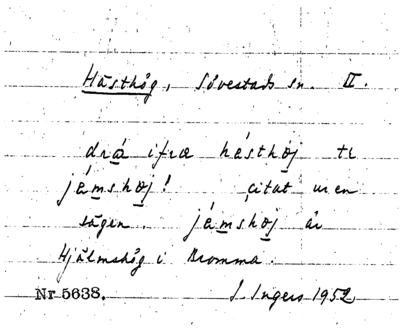 Hästhög, Sövestads sn. II.
dra ifræ hésthøj te
jémshøj! citat ur en
sägen. jémshøj är
Hjälmshög i Bromma.
Nr 5638. I. Ingers 1952